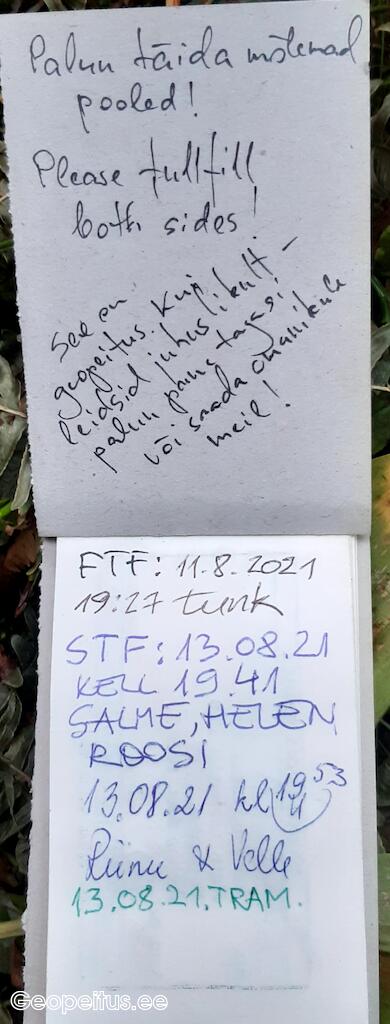 Palun täida mõlemad
pooled!
Please fullfill
both sides!
See on
geopeitus. Kui
leidsid juhuslikult –
palun pane tagasi
või saada omanikule
meil!
FTF: 11.8.2021
19:27 tunk
STF: 13.08.21
KELL 19.41
SALME, HELEN
ROOSI
13.08.21 kl 19 53
& Velle
13.08.21. TRAM.
Geopeitus.ee